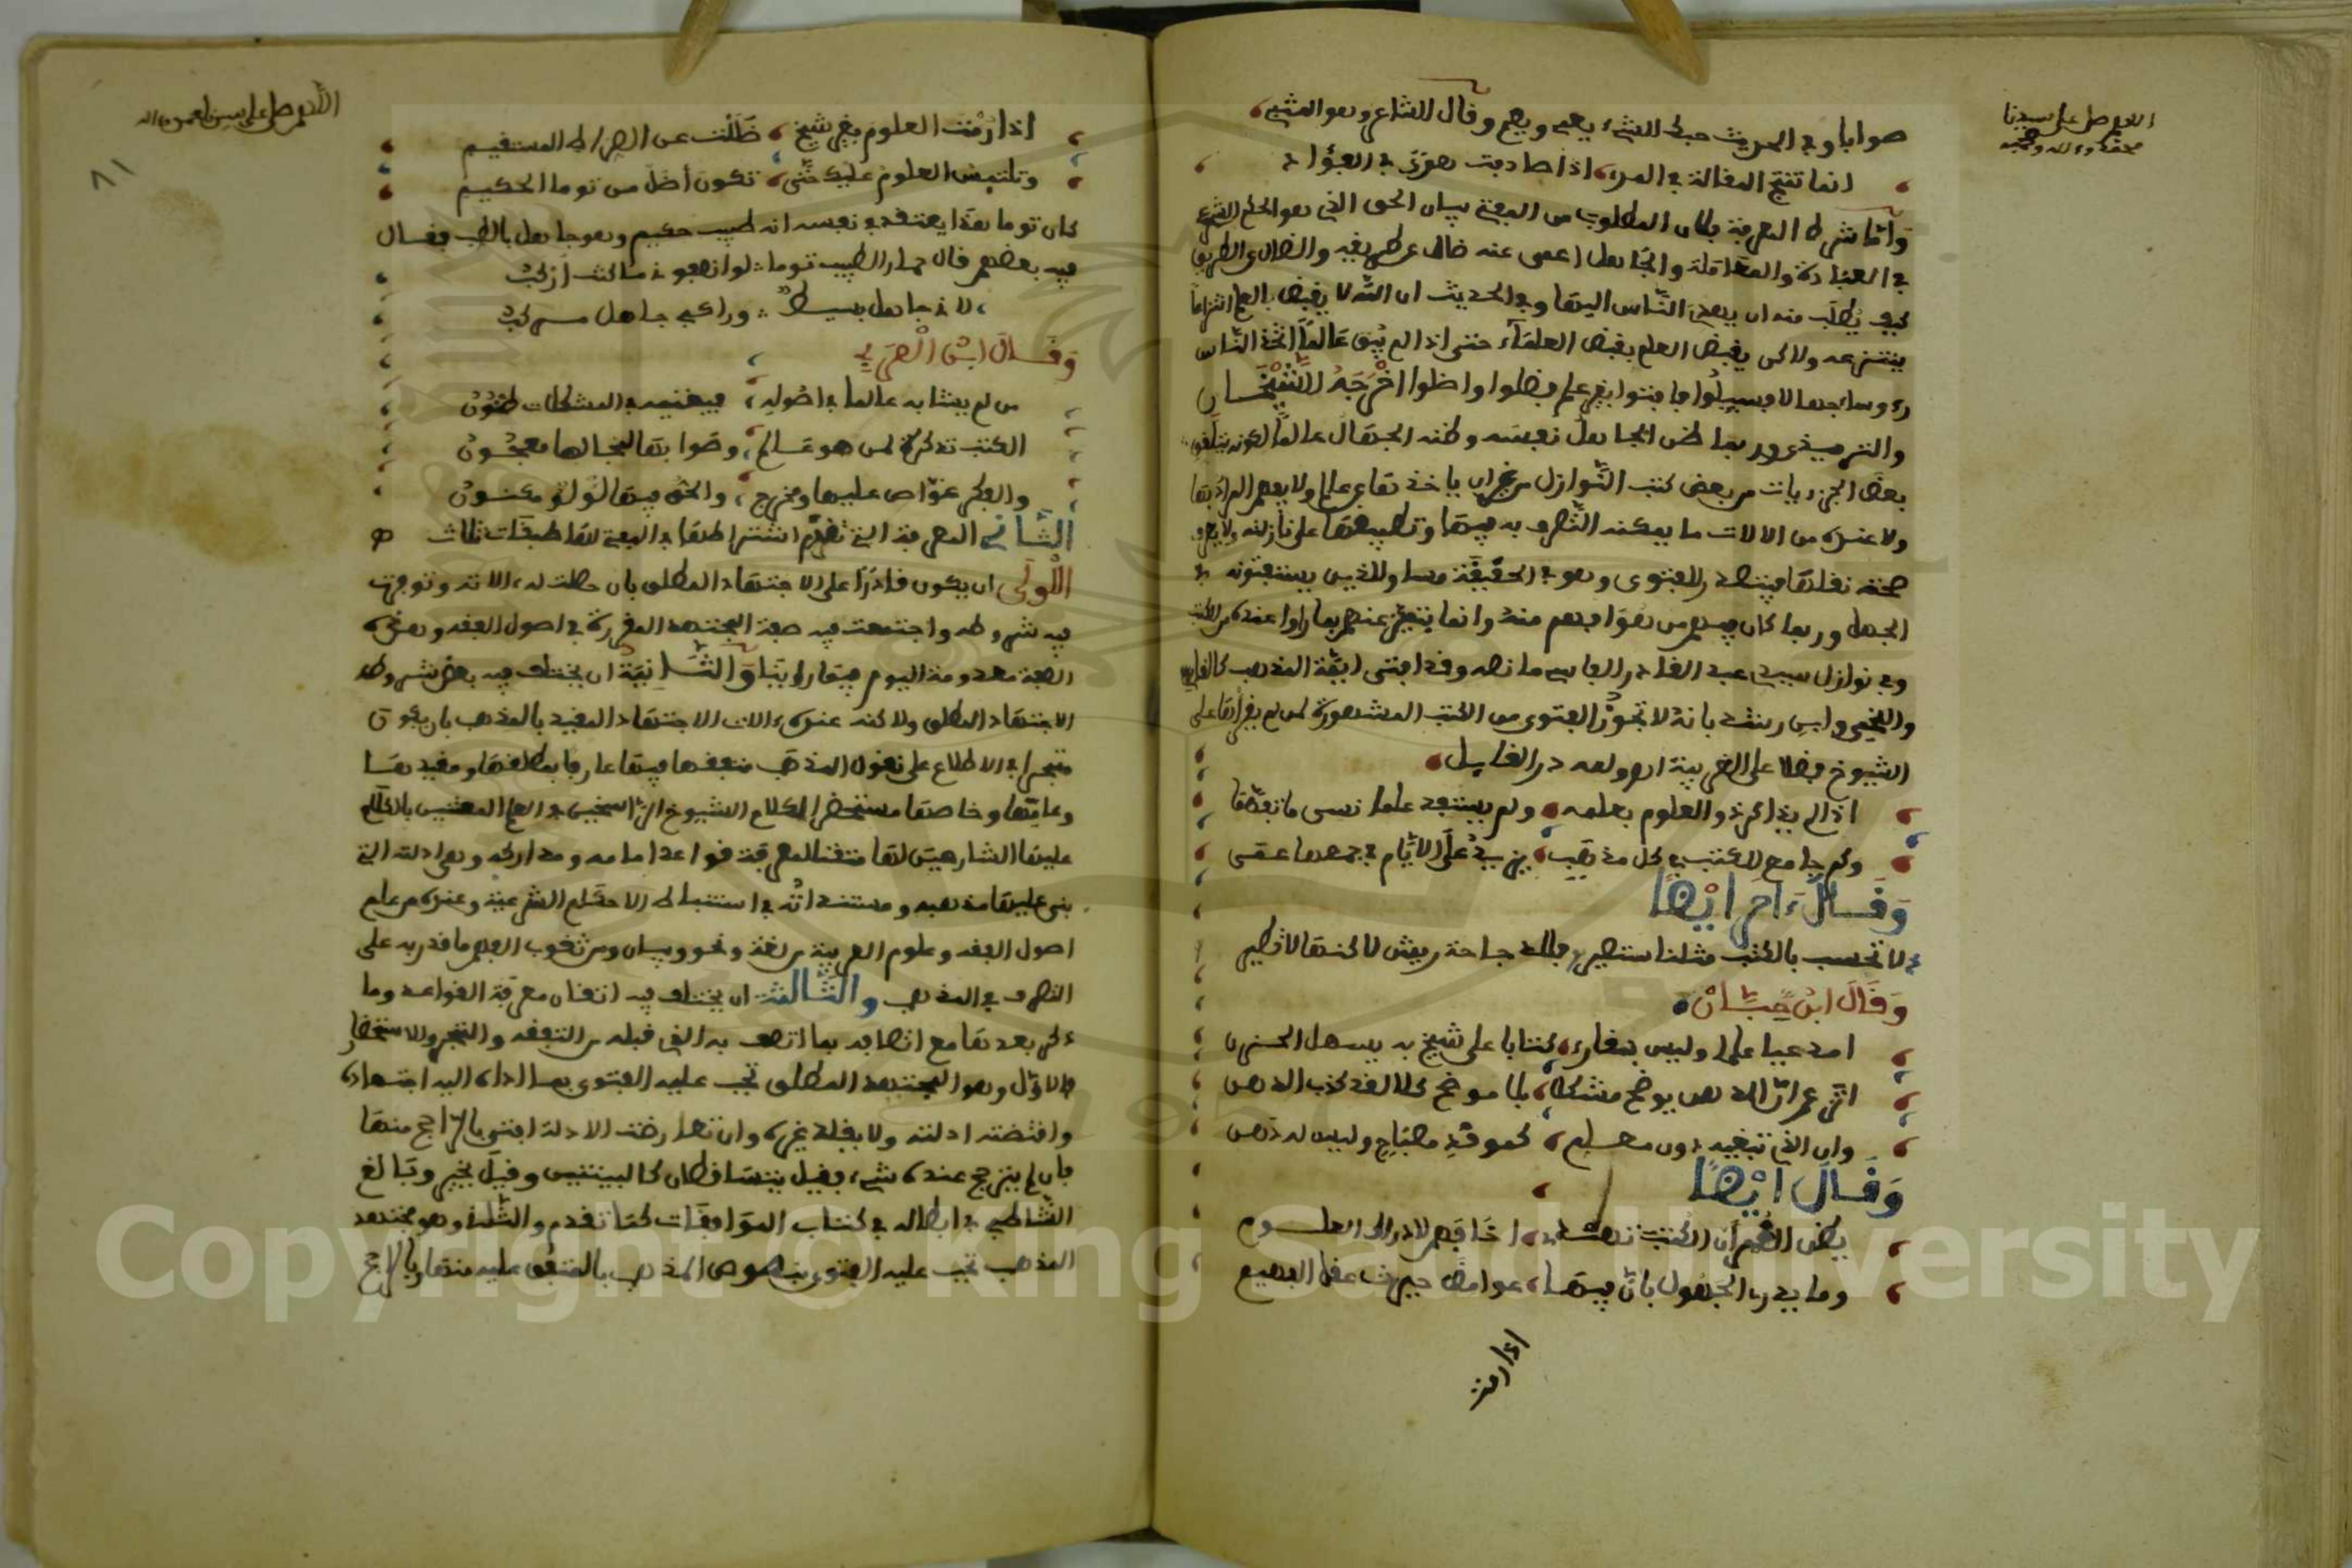 اللهم صل على سيدنا
محمد وءاله وصحبه
صوابا وفي الحديث حبك الشيء يعمي ويصم وقال الشاعر وهو المتنبي
انما تنجح المقالة في المرء اذا صادفت هوى في الفؤاد
واما شرط المعرفة فلان المطلوب من المفتي بيان الحق الذي هو الحكم الشرعي
في العبادة والمعاملة والجاهل اعمى عنه ضال عن طريقه والضال عن الطريق
كيف يطلب منه ان يهدي الناس اليها وفي الحديث ان الله لا يقبض العلم انتزاعا
ينتزعه ولاكن يقبض العلم بقبض العلماء حتى اذا لم يبق عالما اتخذ الناس
رءوسا جهالا فسيلوا فافتوا بغير علم فضلوا واضلوا اخرجه الشيخان
والترميذي وربما ظن الجاهل نفسه وظنه الجهال عالما لكونه يتلقى
بعض الجزءيات من بعض كتب النوازل من غير ان ياخذها عن عالم ولا يفهم المراد بها
ولا عنده من الالات ما يمكنه التصرف به فيها وتطبيقها على نازلته ولا يعرف
صحة نقلها فيتصدر للفتوى وهو في الحقيقة مساو للذين يستفتونه في
الجهل وربما كان فيهم من هو افهم منه وانما يتميز عندهم بما راوا عنده من الكتب
وفي نوازل سيدي عبد القادر الفاسي ما نصه وقد افتى ايمة المذهب كالقابسي
واللخمي وابن رشد بانه لا تجوز الفتوى من الكتب المشهورة لمن لم يقرأها على
الشيوخ فضلا عن الغريبة اه ولله در القايل
اذا لم يذاكر ذو العلوم بعلمه ولم يستفد علما نسى ما تعلما
وكم جامع للكتب في كل مذهب يزيد على الايام في جمعها عمى
وقال ءاخر ايضا
لا تحسب بالكتب مثلنا ستصير فللدجاجة ريش لاكنها لا تطير
وقال ابن حيان
امدعيا علما وليس بقارئ كتابا على شيخ به يسهل الحزن
اتزعم ان الذهن يوضح مشكلا بلا موضح كلا لقد كذب الذهن
وان الذي تبغيه دون معلم كموقد مصباح وليس له دهن
وقال ايضا
يظن الغمر أن الكتب تهدي اخا فهم لادراك العلوم
وما يدري الجهول بان فيها غوامض حيرت عقل الفهيم
اذا رمت
اللهم صل على سيدنا محمد وءاله
81
اذا رمت العلوم بغير شيخ ضللت عن الصراط المستقيم
وتلتبس العلوم عليك حتى تكون أضل من توما الحكيم
كان توما هذا يعتقد في نفسه انه طبيب حكيم وهو جاهل بالطب فقال
فيه بعضهم قال حمار الطبيب توما لو انصفوني ما كنت اركب
لاني جاهل بسيط وراكبي جاهل مركب
وقال ابن العربي
من لم يشافه عالما في اصوله فيقينه في المشكلات ظنون
الكتب تذكرة لمن هو عالم وصوابها لمحالها معجون
والفكر غواص عليها ومخرج والحق فيها لؤلؤ مكنون
الثاني المعرفة التي تقدم اشتراطها في المفتي لها طبقات ثلاث
الأولى ان يكون قادرا على الاجتهاد المطلق بان حصلت له ءالاته وتوفرت
فيه شروطه واجتمعت فيه صفة المجتهد المقررة في اصول الفقه وهذه
الصفة معدومة اليوم فيما راينا والثانية ان يختلف فيه بعض شروط
الاجتهاد المطلق ولاكنه عنده ءالات الاجتهاد المقيد بالمذهب بان يكون
متبحرا في الاطلاع على نقول المذهب متفقها فيها عارفا بمطلقها ومقيدها
وعامها وخاصها مستحضرا لكلام الشيوخ الراسخين في العلم المعتنين بالكلام
عليها الشارحين لها متقنا لمعرفة قواعد امامه ومداركه وهي ادلته التي
بنى عليها مذهبه ومستنداته في استنباط الاحكام الشرعية وعنده من علم
اصول الفقه وعلوم العربية من لغة ونحو وبيان ومن ثقوب الفهم ما قدر به على
التصرف في المذهب والثالثة ان يختلف فيه اتقان معرفة القواعد وما
ذكر بعدها مع اتصافه بما اتصف به الذي قبله من التفقه والتبحر والاستحضار
فالاول وهو المجتهد المطلق تجب عليه الفتوى بما اداه اليه اجتهاده
واقتضته ادلته ولا يقلد غيره وان تعارضت الادلة افتى بالراجح منها
فان لم يترجح عنده شيء فقيل يتساقطان كالبينتين وقيل يخير وبالغ
الشاطبي في ابطاله في كتاب الموافقات كما تقدم والثاني وهو مجتهد
المذهب تجب عليه الفتوى بنصوص المذهب بالمتفق عليه منها وبالراجح
Copyright © King Saud University